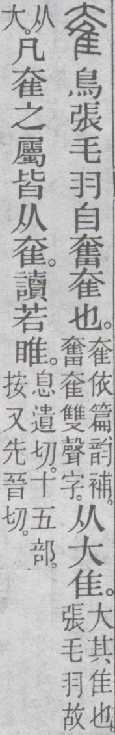 奞鳥張毛羽自奮奞也。奞依篇韵補。奮奞雙聲字。从大隹。大其隹也。張毛羽故
从大。凡奞之屬皆从奞。讀若睢。息遺切。十五部。按又先晉切。